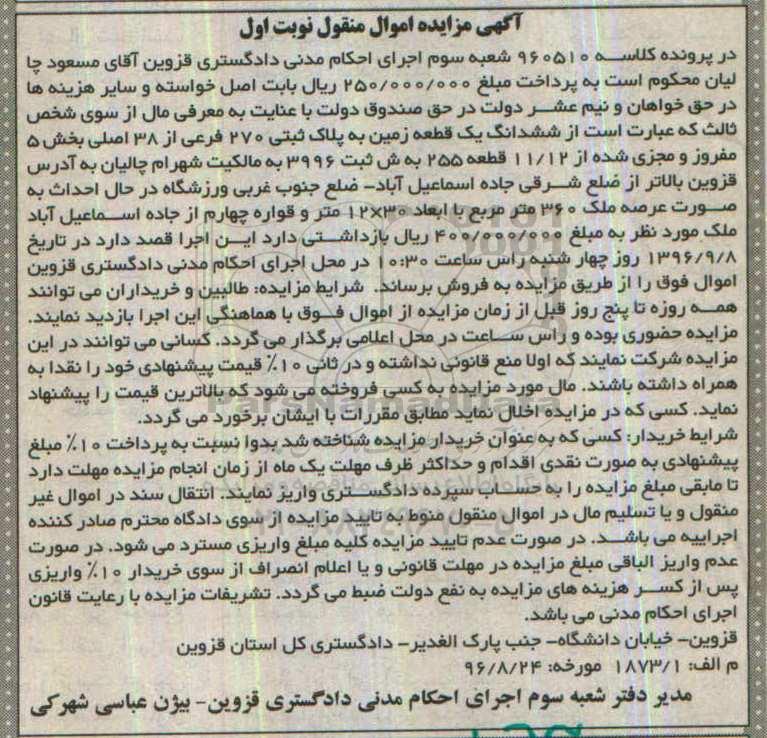 آگهی مزایده اموال منقول نوبت اول
در پرونده کلاسه ۹۶۰۵۱۰ شعبه سوم اجرای احکام مدنی دادگستری قزوین آقای مسعود چا
لیان محکوم است به پرداخت مبلغ ۲۵۰/۰۰۰/۰۰۰ ریال بابت اصل خواسته و سایر هزینه ها
در حق خواهان و نیم عشر دولت در حق صندوق دولت با عنایت به معرفی مال از سوی شخص
ثالث که عبارت است از ششدانگ یک قطعه زمین به پلاک ثبتی ۲۷۰ فرعی از ۳۸ اصلی بخش ۵
مفروز و مجزی شده از ۱۱/۱۲ قطعه ۲۵۵ به ش ثبت ۳۹۹۶ به مالکیت شهرام چالیان به آدرس
قزوین بالاتر از ضلع شرقی جاده اسماعیل آباد- ضلع جنوب غربی ورزشگاه در حال احداث به
صورت عرصه ملک ۳۶۰ متر مربع با ابعاد ۳۰×۱۲ متر و قواره چهارم از جاده اسماعیل آباد
ملک مورد نظر به مبلغ ۴۰۰/۰۰۰/۰۰۰ ریال بازداشتی دارد این اجرا قصد دارد در تاریخ
۱۳۹۶/۹/۸ روز چهار شنبه راس ساعت ۱۰:۳۰ در محل اجرای احکام مدنی دادگستری قزوین
اموال فوق را از طریق مزایده به فروش برساند. شرایط مزایده: طالبین و خریداران می توانند
همه روزه تا پنج روز قبل از زمان مزایده از اموال فوق با هماهنگی این اجرا بازدید نمایند.
مزایده حضوری بوده و راس ساعت در محل اعلامی برگذار می گردد. کسانی می توانند در این
مزایده شرکت نمایند که اولا منع قانونی نداشته و در ثانی ۱۰٪ قیمت پیشنهادی خود را نقدا به
همراه داشته باشند. مال مورد مزایده به کسی فروخته می شود که بالاترین قیمت را پیشنهاد
نماید. کسی که در مزایده اخلال نماید مطابق مقررات با ایشان برخورد می گردد.
شرایط خریدار: کسی که به عنوان خریدار مزایده شناخته شد بدوا نسبت به پرداخت ۱۰٪ مبلغ
پیشنهادی به صورت نقدی اقدام و حداکثر ظرف مهلت یک ماه از زمان انجام مزایده مهلت دارد
تا مابقی مبلغ مزایده را به حساب سپرده دادگستری واریز نمایند. انتقال سند در اموال غیر
منقول و یا تسلیم مال در اموال منقول منوط به تایید مزایده از سوی دادگاه محترم صادر کننده
اجراییه می باشد. در صورت عدم تایید مزایده کلیه مبلغ واریزی مسترد می شود. در صورت
عدم واریز الباقی مبلغ مزایده در مهلت قانونی و یا اعلام انصراف از سوی خریدار ۱۰٪ واریزی
پس از کسر هزینه های مزایده به نفع دولت ضبط می گردد. تشریفات مزایده با رعایت قانون
اجرای احکام مدنی می باشد.
قزوین- خیابان دانشگاه- جنب پارک الغدیر- دادگستری کل استان قزوین
م الف: ۱۸۷۳/۱ مورخه: ۹۶/۸/۲۴
مدیر دفتر شعبه سوم اجرای احکام مدنی دادگستری قزوین- بیژن عباسی شهرکی